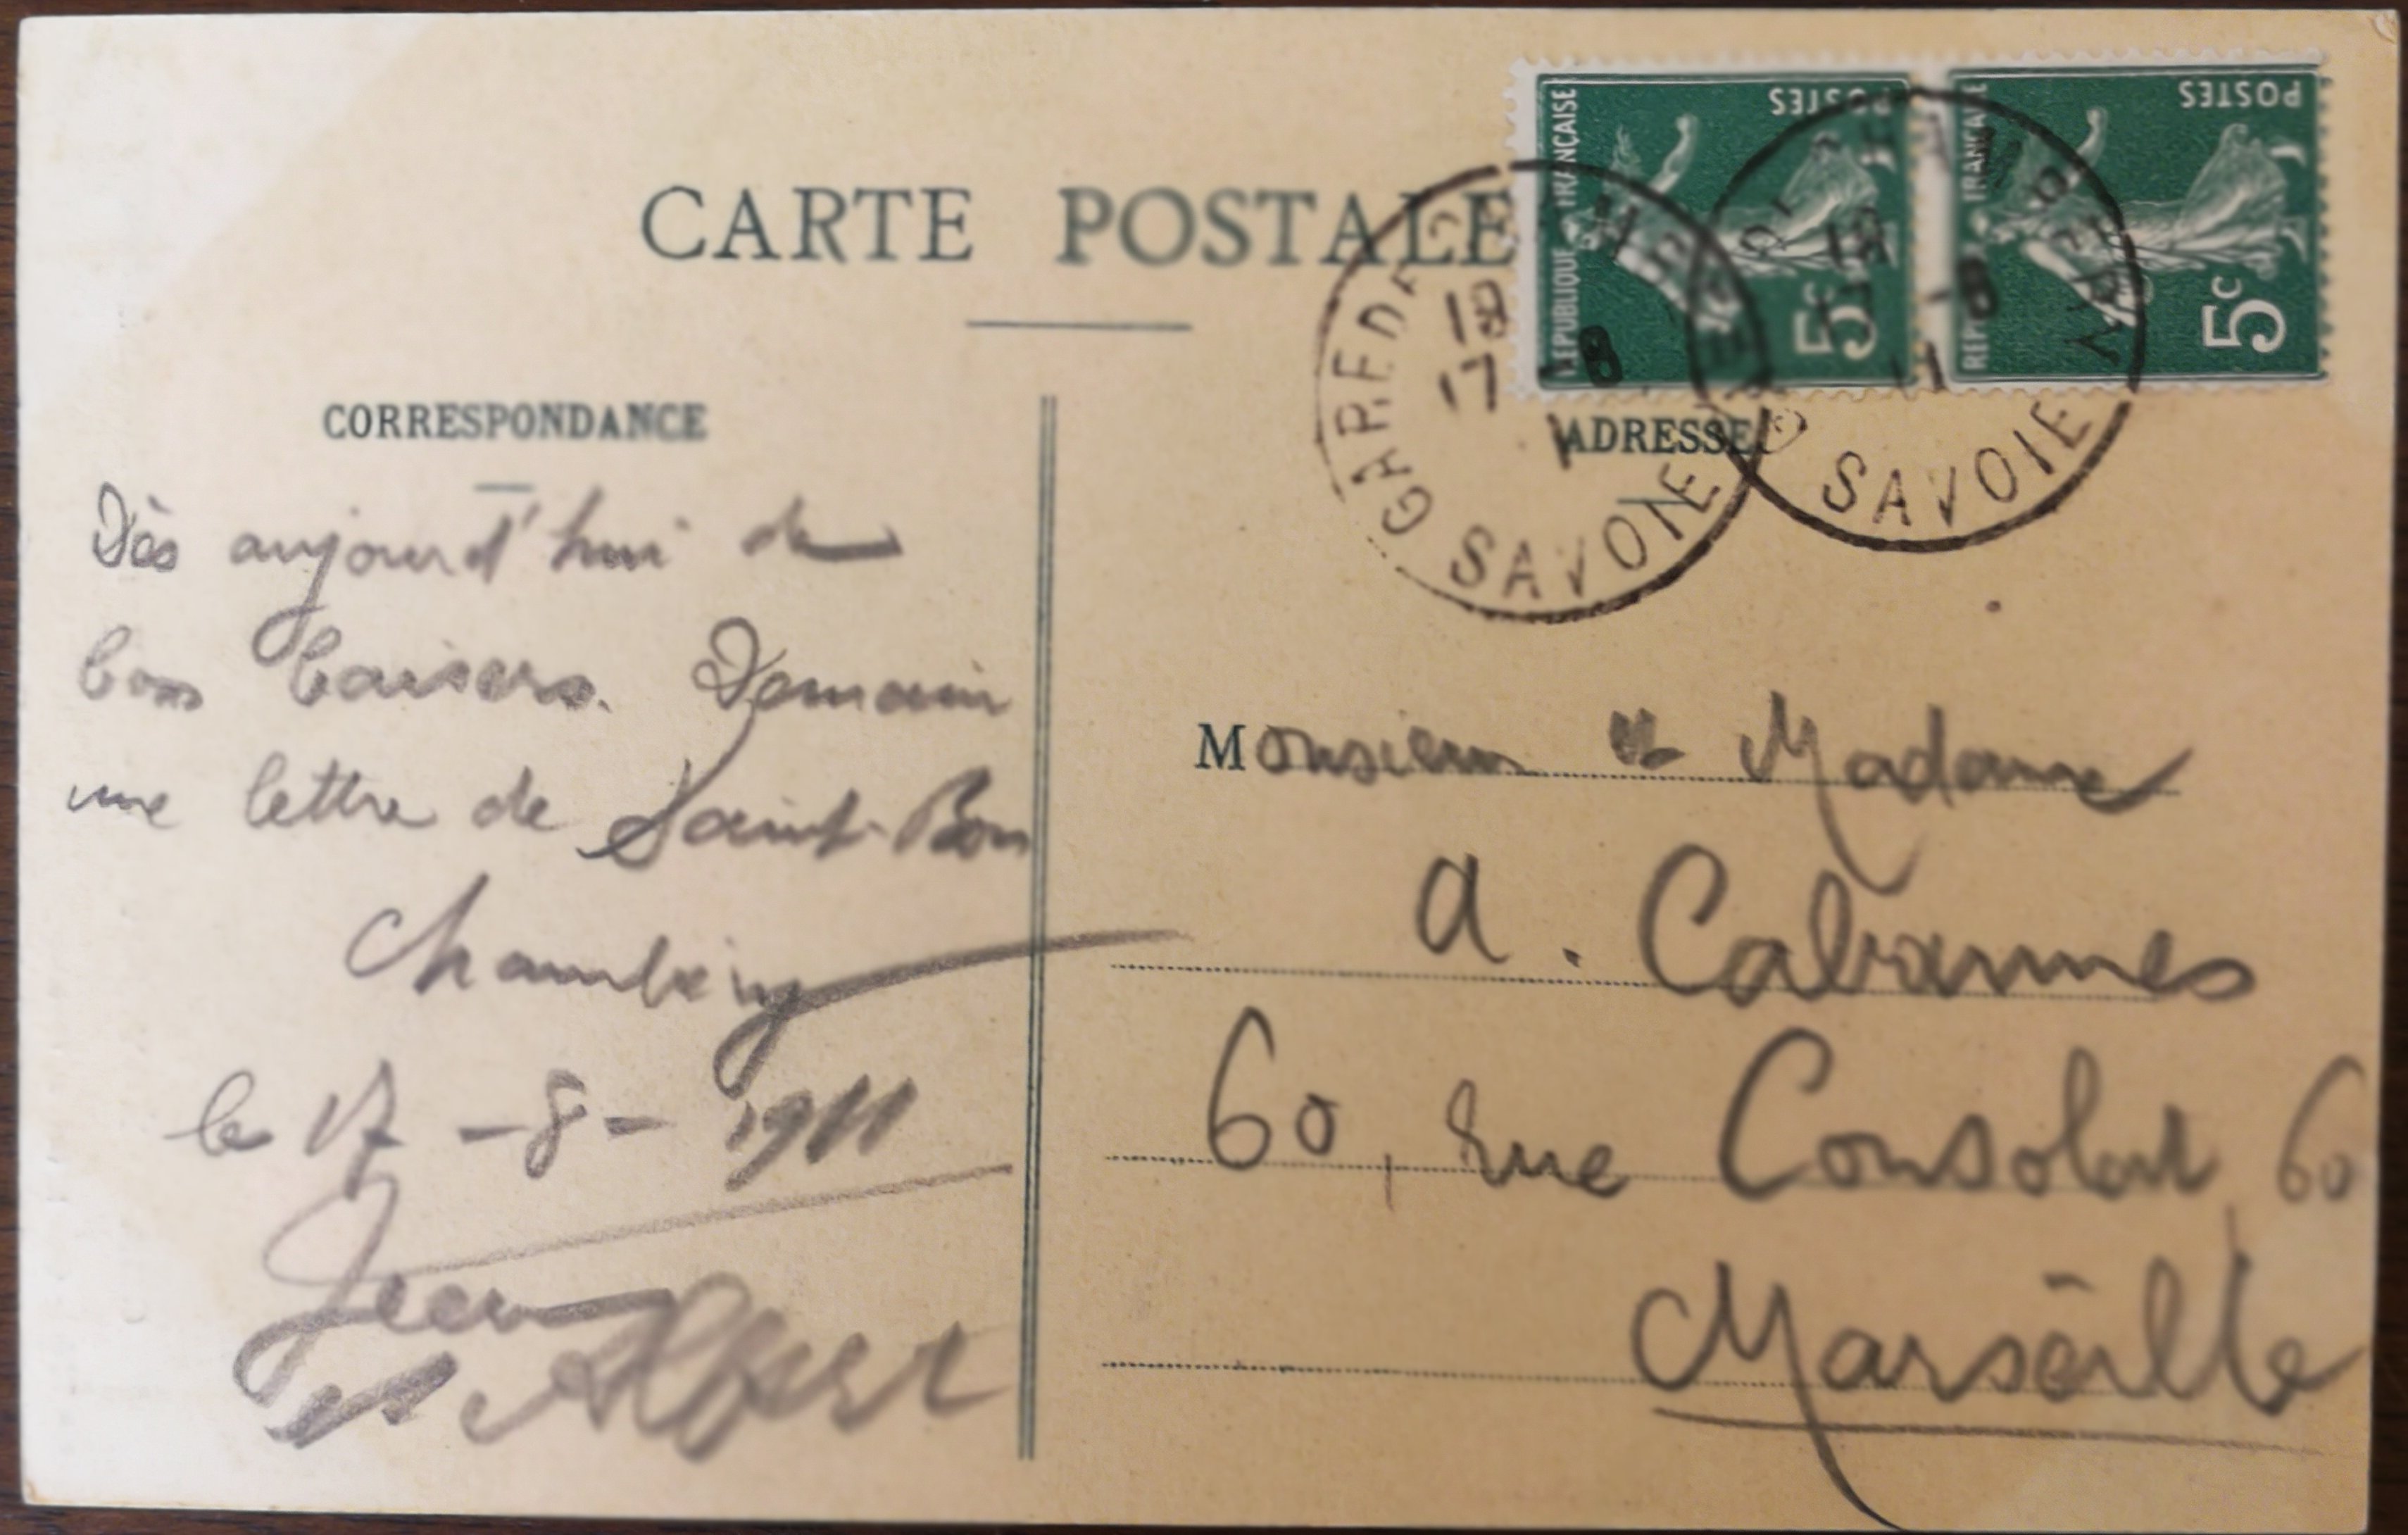 CARTE POSTALE
CORRESPONDANCE
Dès aujourd'hui de
bons baisers. Demain
une lettre de Saint-Bon
Chambéry
le 17 - 8 - 1911
Jean
et Albert
RÉPUBLIQUE FRANÇAISE
POSTES
5c
RÉPUBLIQUE FRANÇAISE
POSTES
5c
GARE DE CHAMBERY
18
17 - 8
SAVOIE
GARE DE CHAMBERY
18
- 8
11
SAVOIE
ADRESSE
Monsieur et Madame
A. Cabannes
60, Rue Consolat 60
Marseille